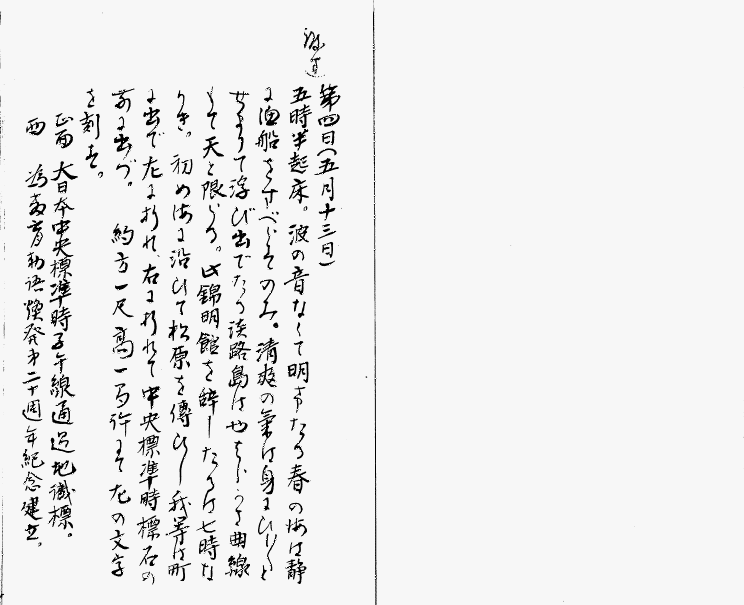 第四日（五月十三日）
五時半起床。波の音なくて明けたる春の海は静
に漁船をすべらすのみ。清爽の氣は身にひしひしと
せまりて浮び出でたる淡路島はやはらかき曲線
もて天を限どる。此錦明館を辞したるは七時な
りき。初め海に沿ひて松原を傳ひし我等は町
に出で左に折れ、右に折れて中央標準時標石の
前に出づ。約方一尺高一間許にして左の文字
を刻す。
正面 大日本中央標準時子午線通過地識標。
西 為教育勅語煥発第二十週年紀念建立。